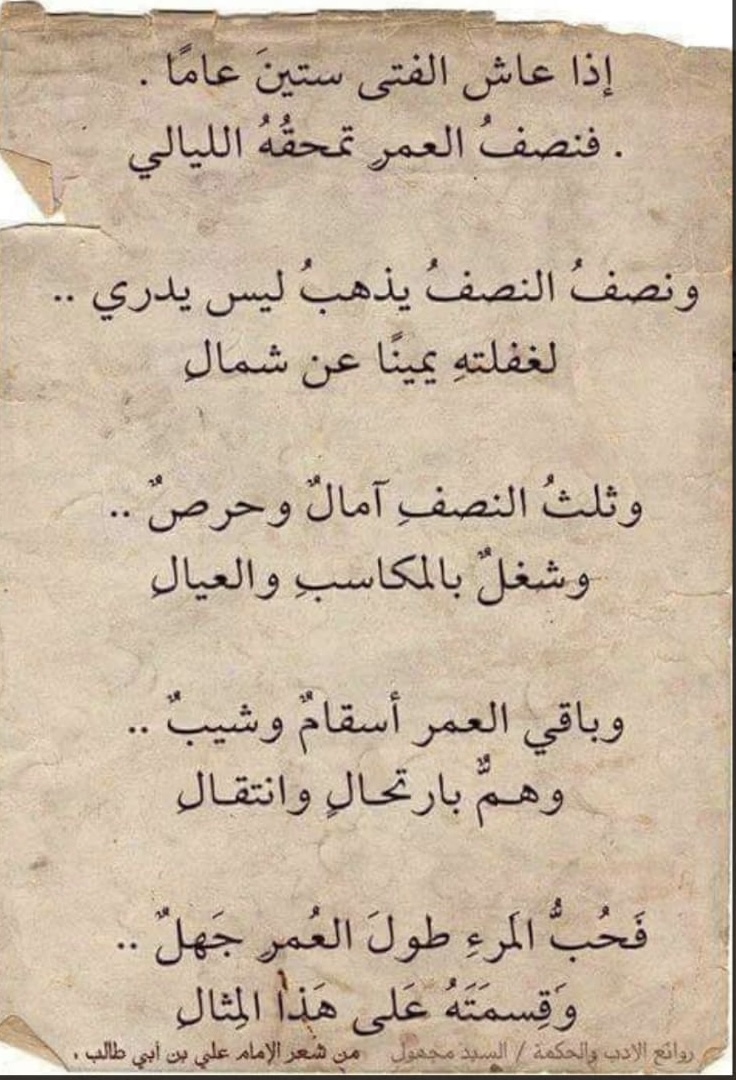 إذا عاش الفتى ستينَ عامًا .
. فنصفُ العمرِ تمحقُهُ الليالي
ونصفُ النصفُ يذهبُ ليس يدري ..
لغفلتهِ يمينًا عن شمالِ
وثلثُ النصفِ آمالٌ وحرصٌ ..
وشغلٌ بالمكاسبِ والعيالِ
وباقي العمر أسقامٌ وشيبٌ ..
وهـمٌّ بارتحـالٍ وانتقـالِ
فَحُبُّ المَرءِ طولَ العُمرِ جَهلٌ ..
وَقِسمَتَهُ عَلى هَذا المِثالِ
روائع الادب والحكمة / السيد مجهول من شعر الإمام علي بن ابي طالب .